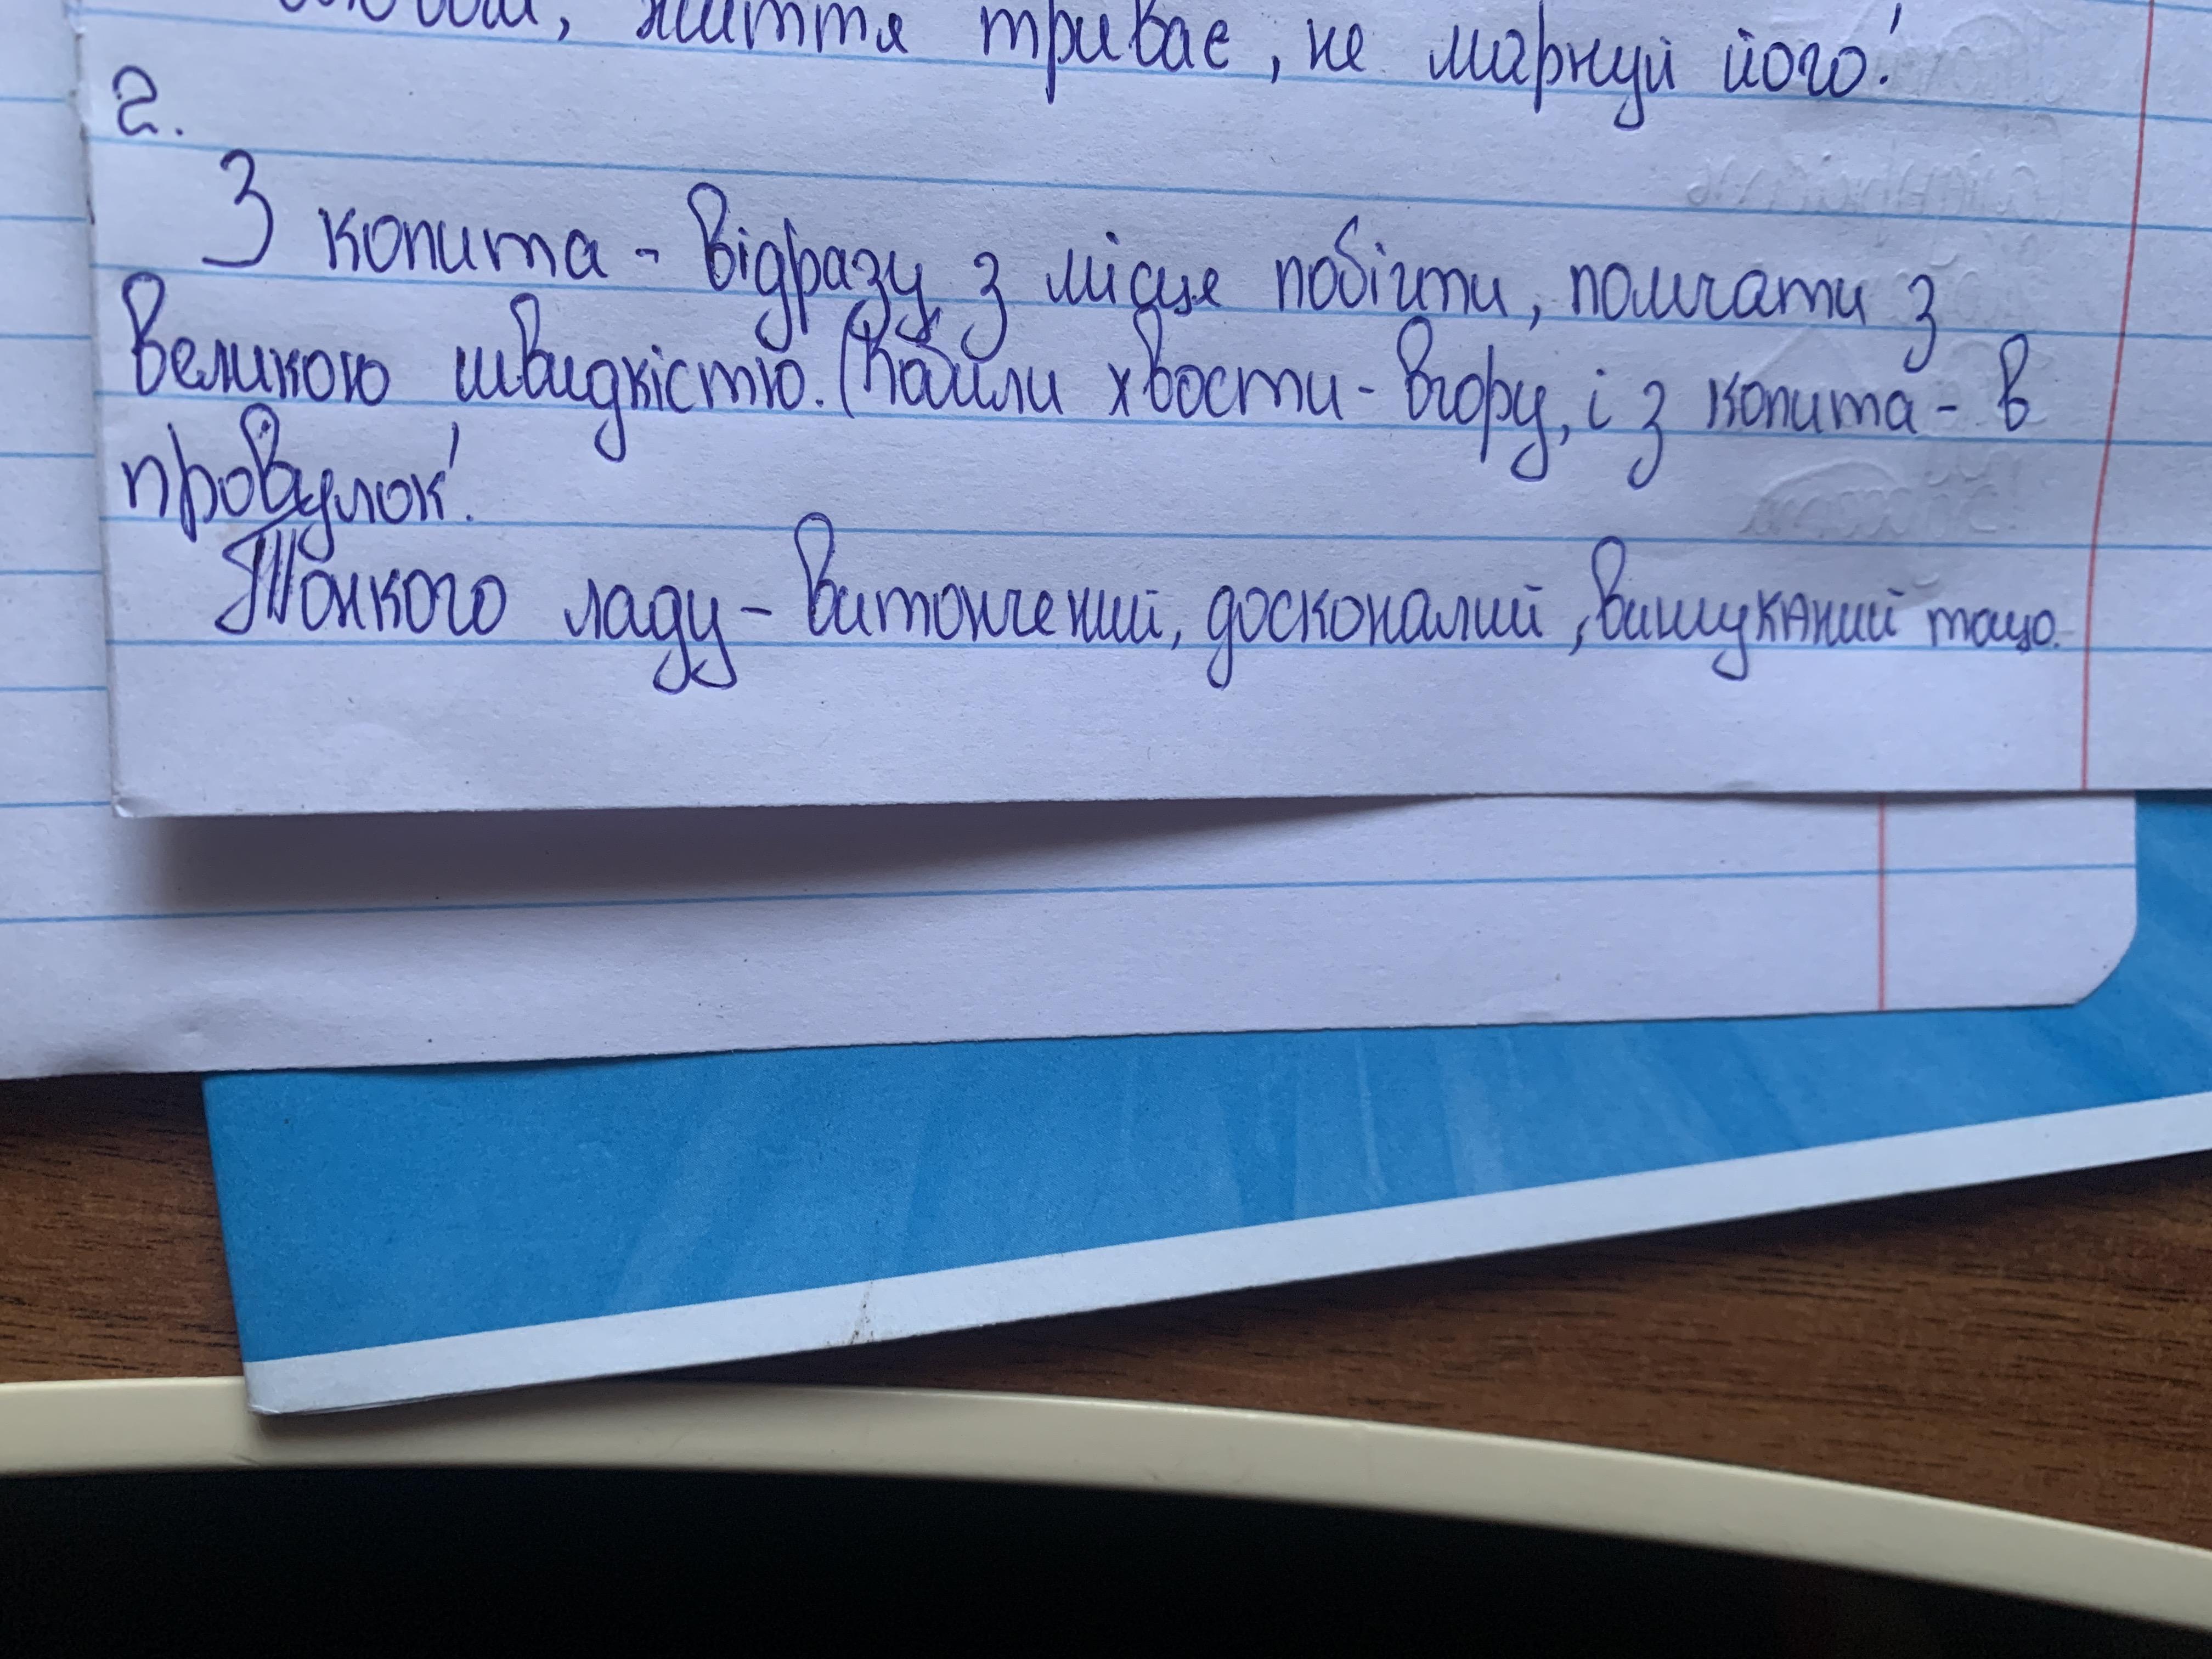 життя триває, не марнуй його!
2.
З копита - відразу з місця побігти, помчати з
великою швидкістю. (Кобили хвости - вгору, і з копита - в
провулок!
Тонкого ладу - витончений, досконалий, вишуканий тощо.